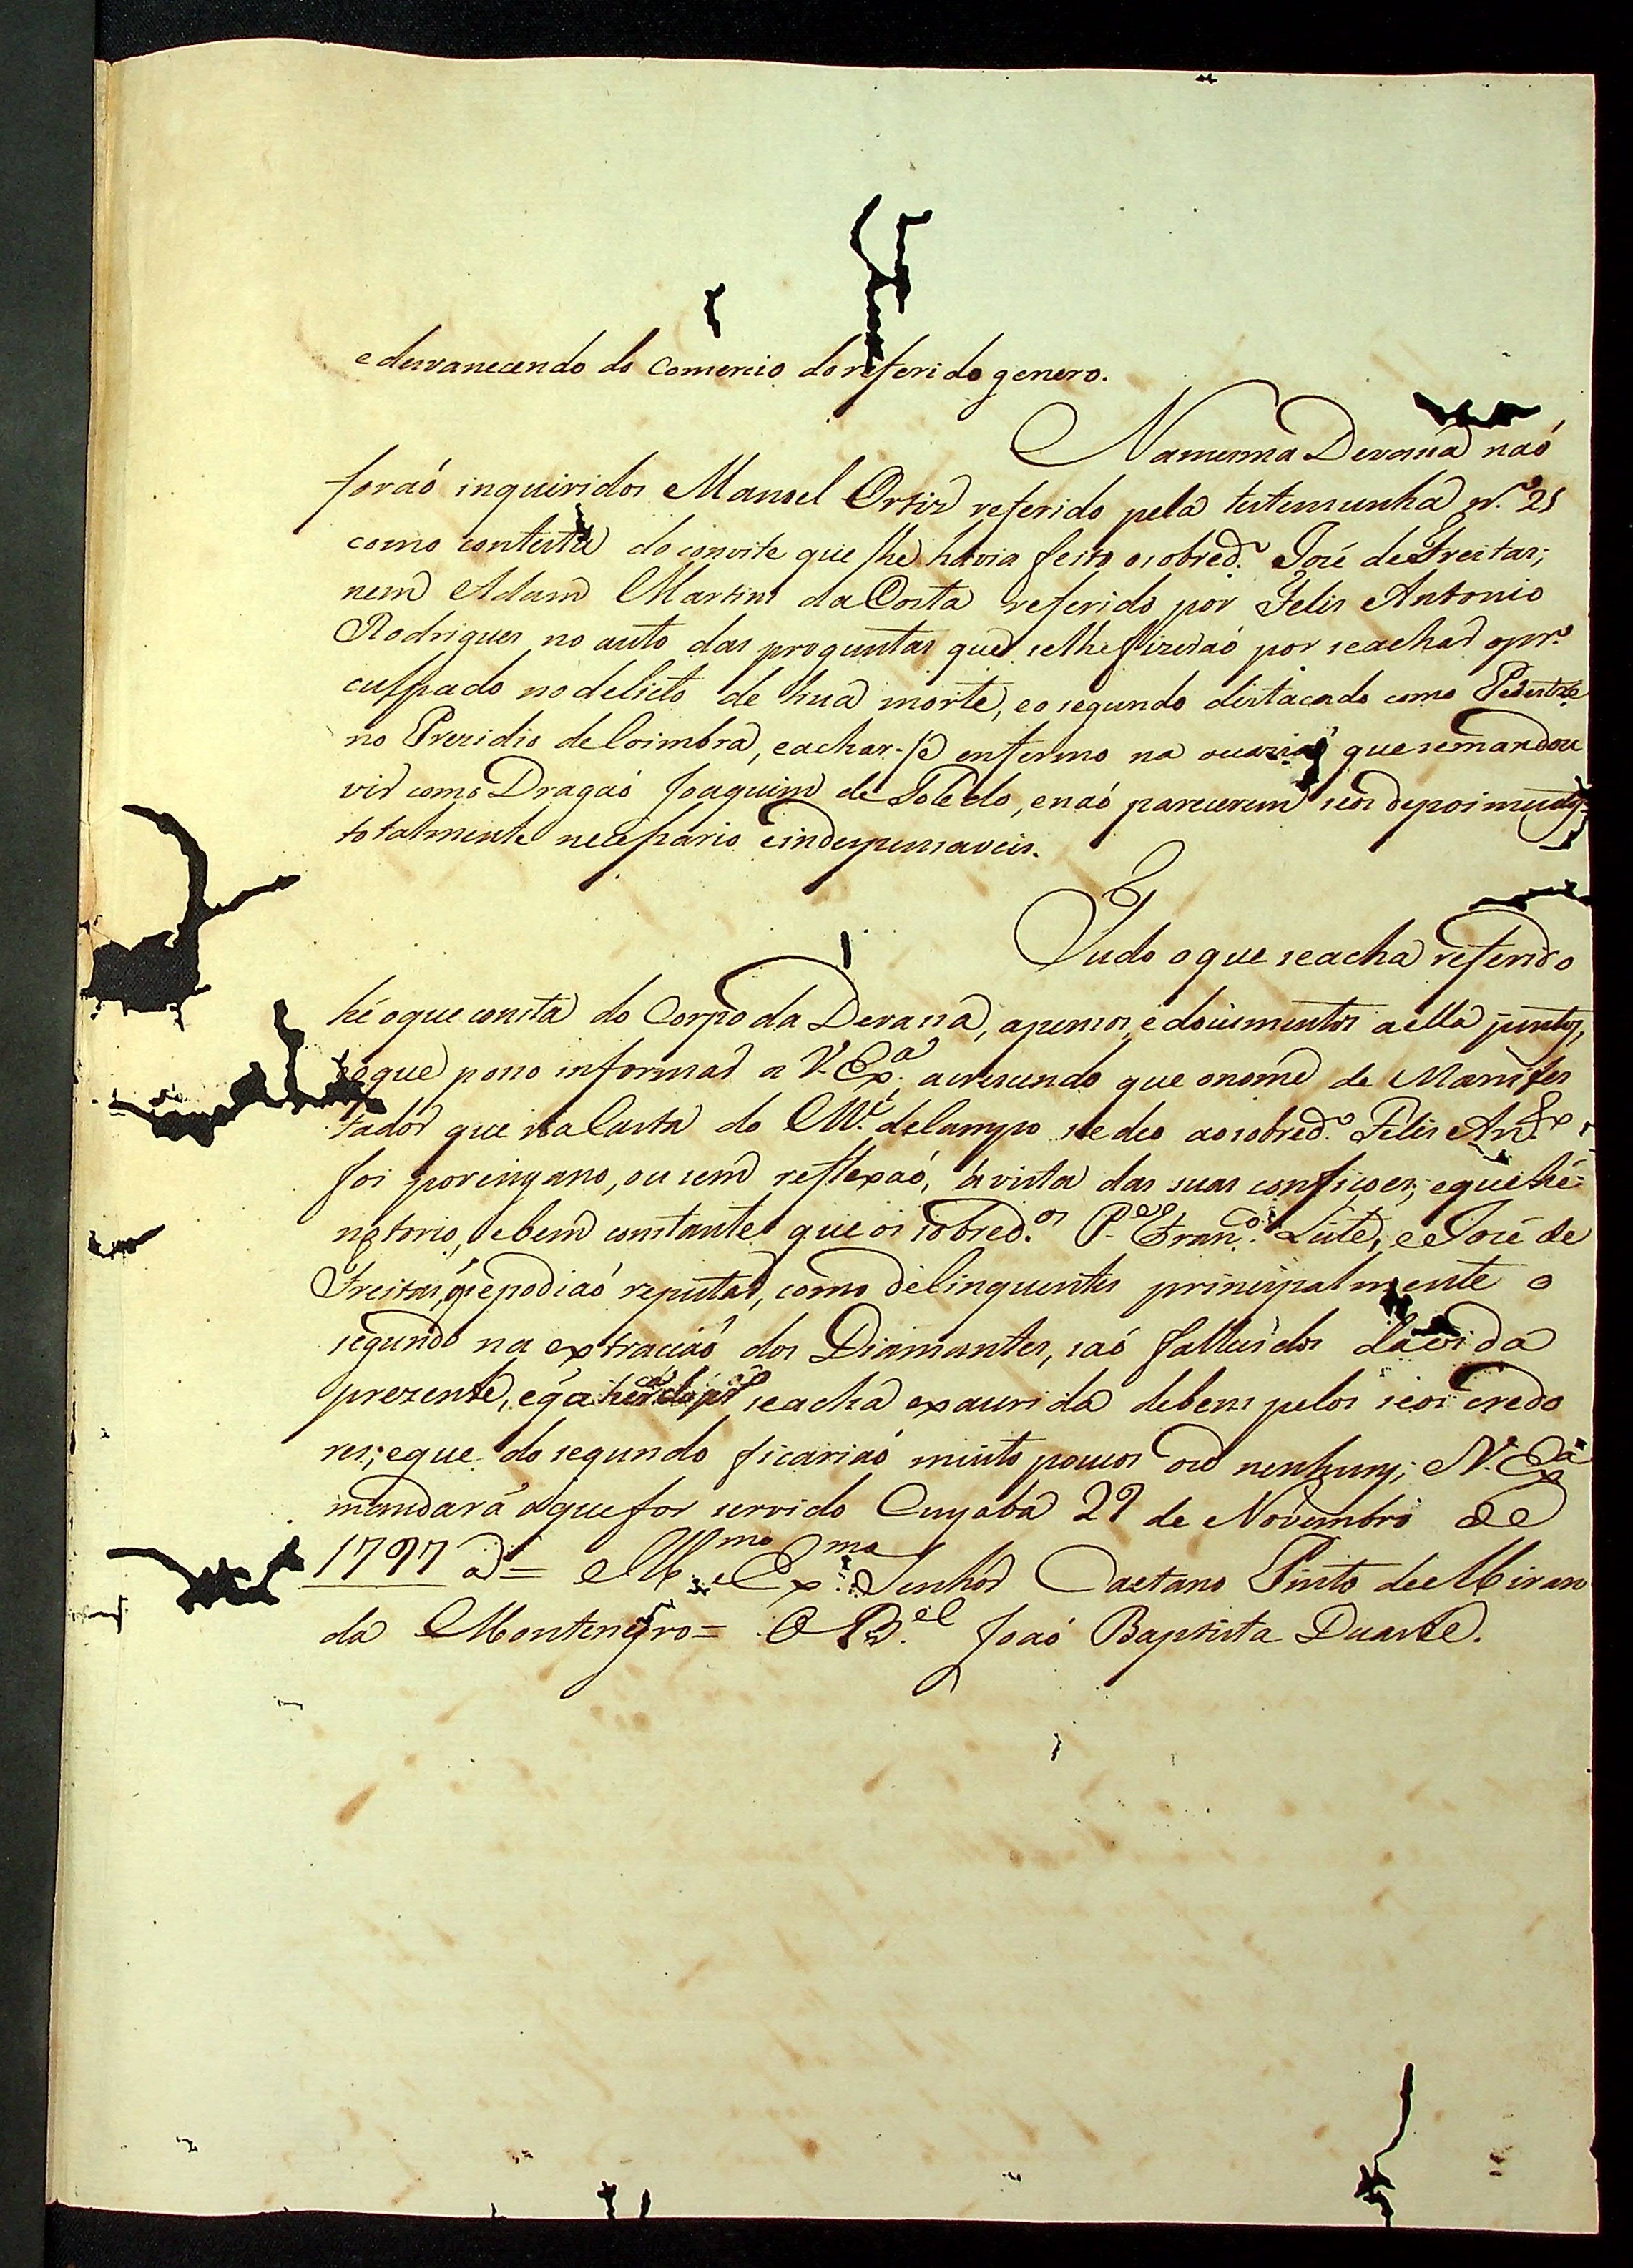 e desvanecendo do Comercio do referido genero.
Na mesma Devassa naó
foraó inquiridos Manoel Ortiz referido pela testemunha N.º 21
como contesta do convite que lhe havia feito o sobred.º José de Freitas;
nem Adam Martins da Costa referido por Felis Antonio
Rodrigues no auto das proguntas que se lhe fizeraó por se achar o pr.º
culpado no delicto de hua morte, e o segundo destacado como Pedestre
no Prezidio de Coimbra, e achar-se enfermo na ocaziaó que se mandou
vir como Dragaó Joaquim de Toledo, e naó parecerem seos depoimentos
totalmente necessario e indespensaveis.
Tudo o que se acha referido
hé o que consta do Corpo da Devassa, apensos, e documentos a ella juntos,
e o que posso informar a V. Ex.ª acrescendo que o nome de Manifes
tador que na Carta do M.e de Campo se deo ao sobred.º Felis Ant.º
foi por engano, ou sem reflexaó, á vista das suas confisoes; e que hé
notorio, e bem constante que os sobred.os P.e Fran.co Leite, e José de
Freitas, q se podiaó reputar, como delinquentes principalmente o
segundo na extracçaó dos Diamantes, saó falleuidos da vida
prezente, e q a do se acha exaurida de bens pelos seos credo
res; e que do segundo ficariaó muito poucos ou nenhuns; V. Ex.ª
mandará o que for servido Cuyabá 29 de Novembro de
1797 a = Ill.mo e Ex.mo Senhor Caetano Pinto de Miran
da Montenegro = O B.el Joaó Baptista Duarte.